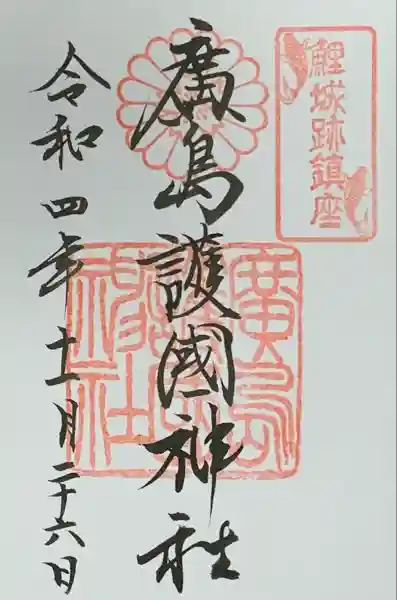 鯉城跡鎮座
廣島護國神社
令和四年十一月二十六日
廣島護國神社